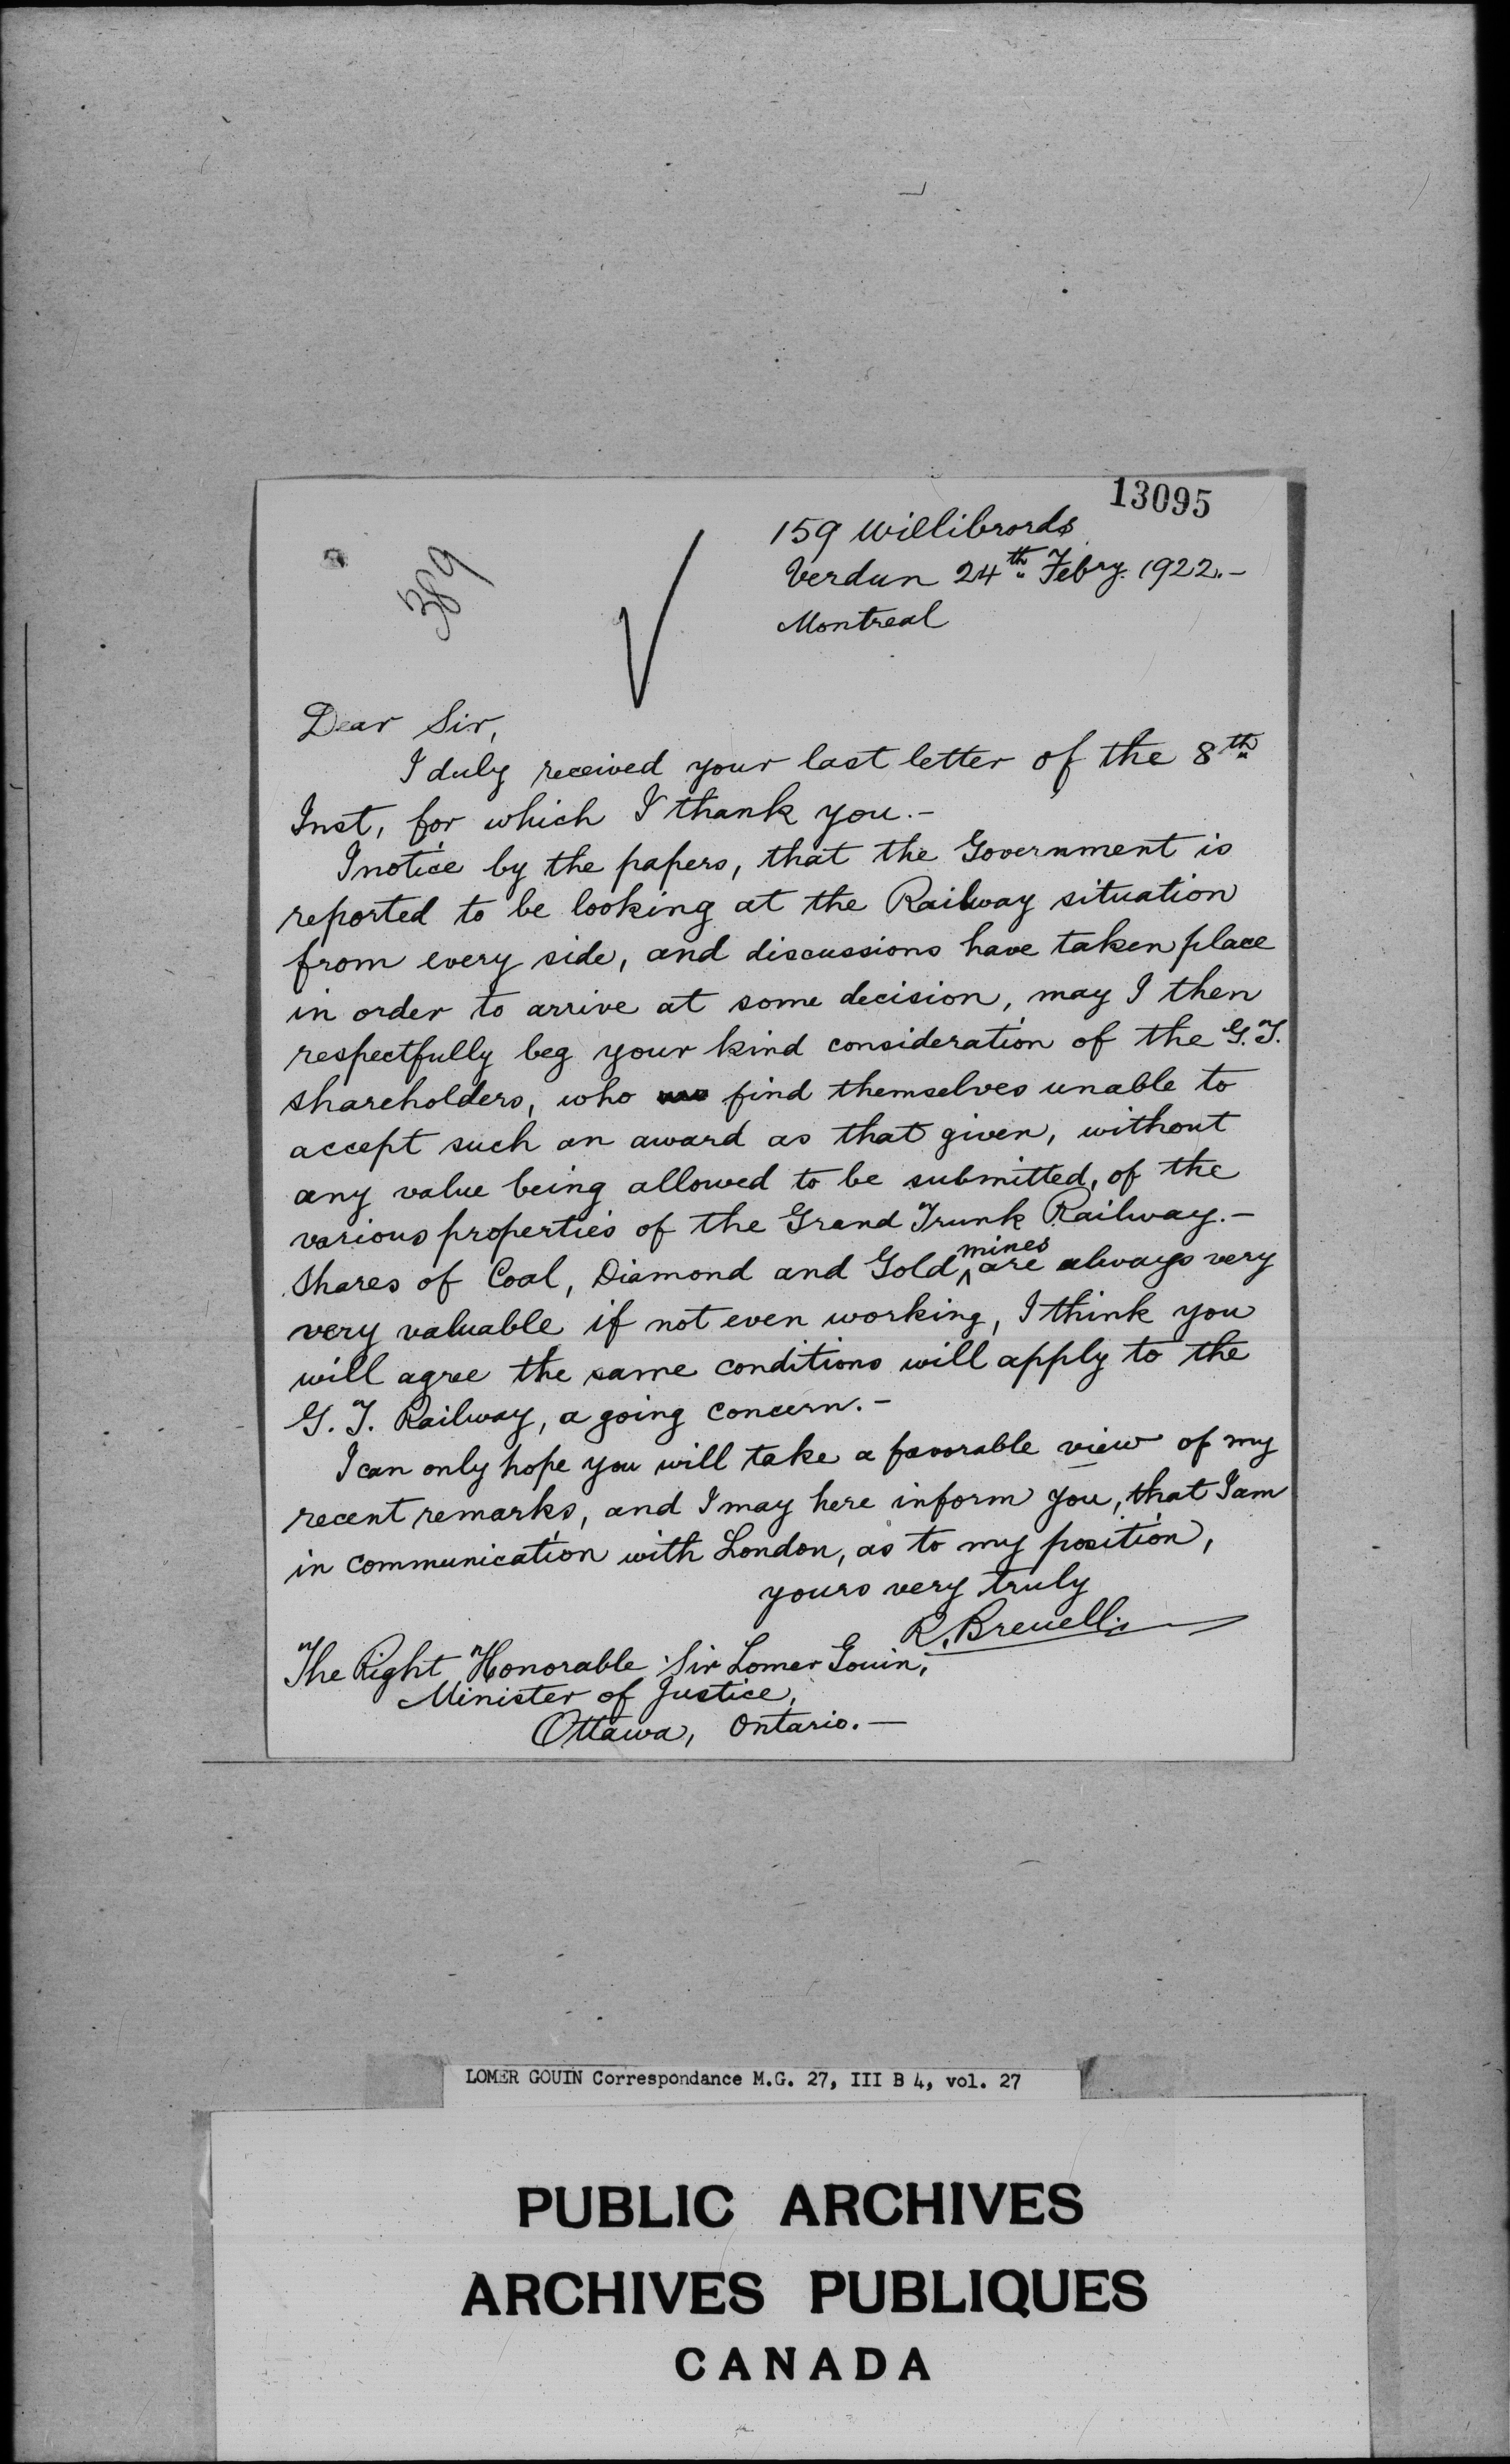 13095
389
159 Willibrords
Verdun 24th Febry. 1922.-
Montreal
Dear Sir,
I duly received your last letter of the 8th
Inst, for which I thank you.-
I notice by the papers, that the Government is
reported to be looking at the Railway situation
from every side, and discussions have taken place
in order to arrive at some decision, may I then
respectfully beg your kind consideration of the G.T.
shareholders, who find themselves unable to
accept such an award as that given, without
any value being allowed to be submitted, of the
various properties of the Grand Trunk Railway.-
Shares of Coal, Diamond and Gold mines are always very
very valuable if not even working, I think you
will agree the same conditions will apply to the
G. T. Railway, a going concern.-
I can only hope you will take a favorable view of my
recent remarks, and I may here inform you, that I am
in communication with London, as to my position,
yours very truly
R. Breuell.
The Right Honorable Sir Lomer Gouin,
Minister of Justice,
Ottawa, Ontario.-
LOMER GOUIN Correspondance M.G. 27, III B 4, vol. 27
PUBLIC ARCHIVES
ARCHIVES PUBLIQUES
CANADA